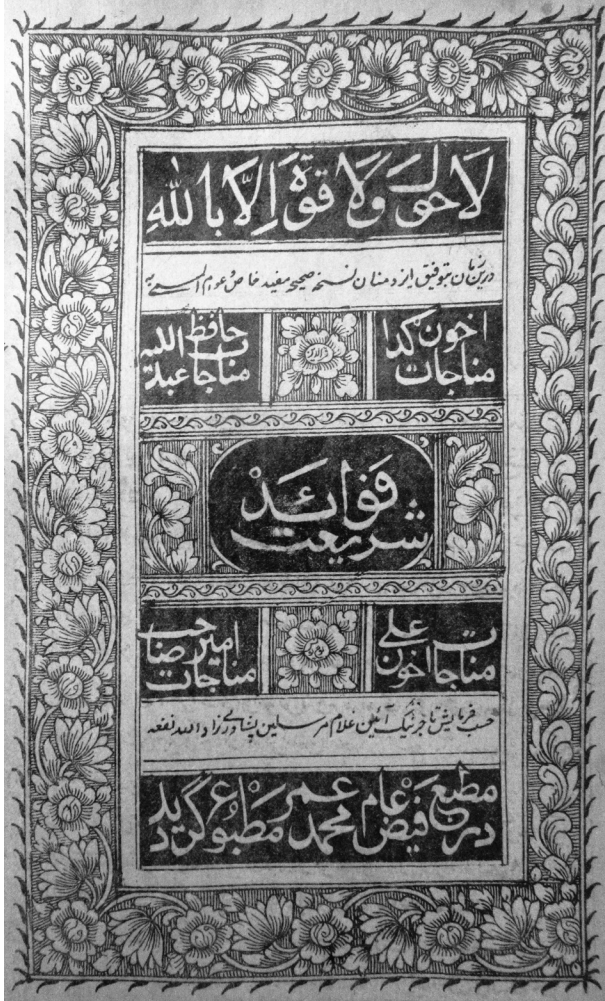 لا حول ولا قوة الا بالله
درین زمان بتوفیق ایزد منان نسخه صحیحه مفید خاص و عوام المسمی به
مناجات اخون گدا
مناجات حافظ عبد الله
فوائد شریعت
مناجات اخون علی
مناجات امیر صاحب
حسب فرمایش تاجر نیک آئین غلام مرسلین پشاوری زاد الله نفعه
در مطبع فیض عام محمد عمری مطبوع گردید